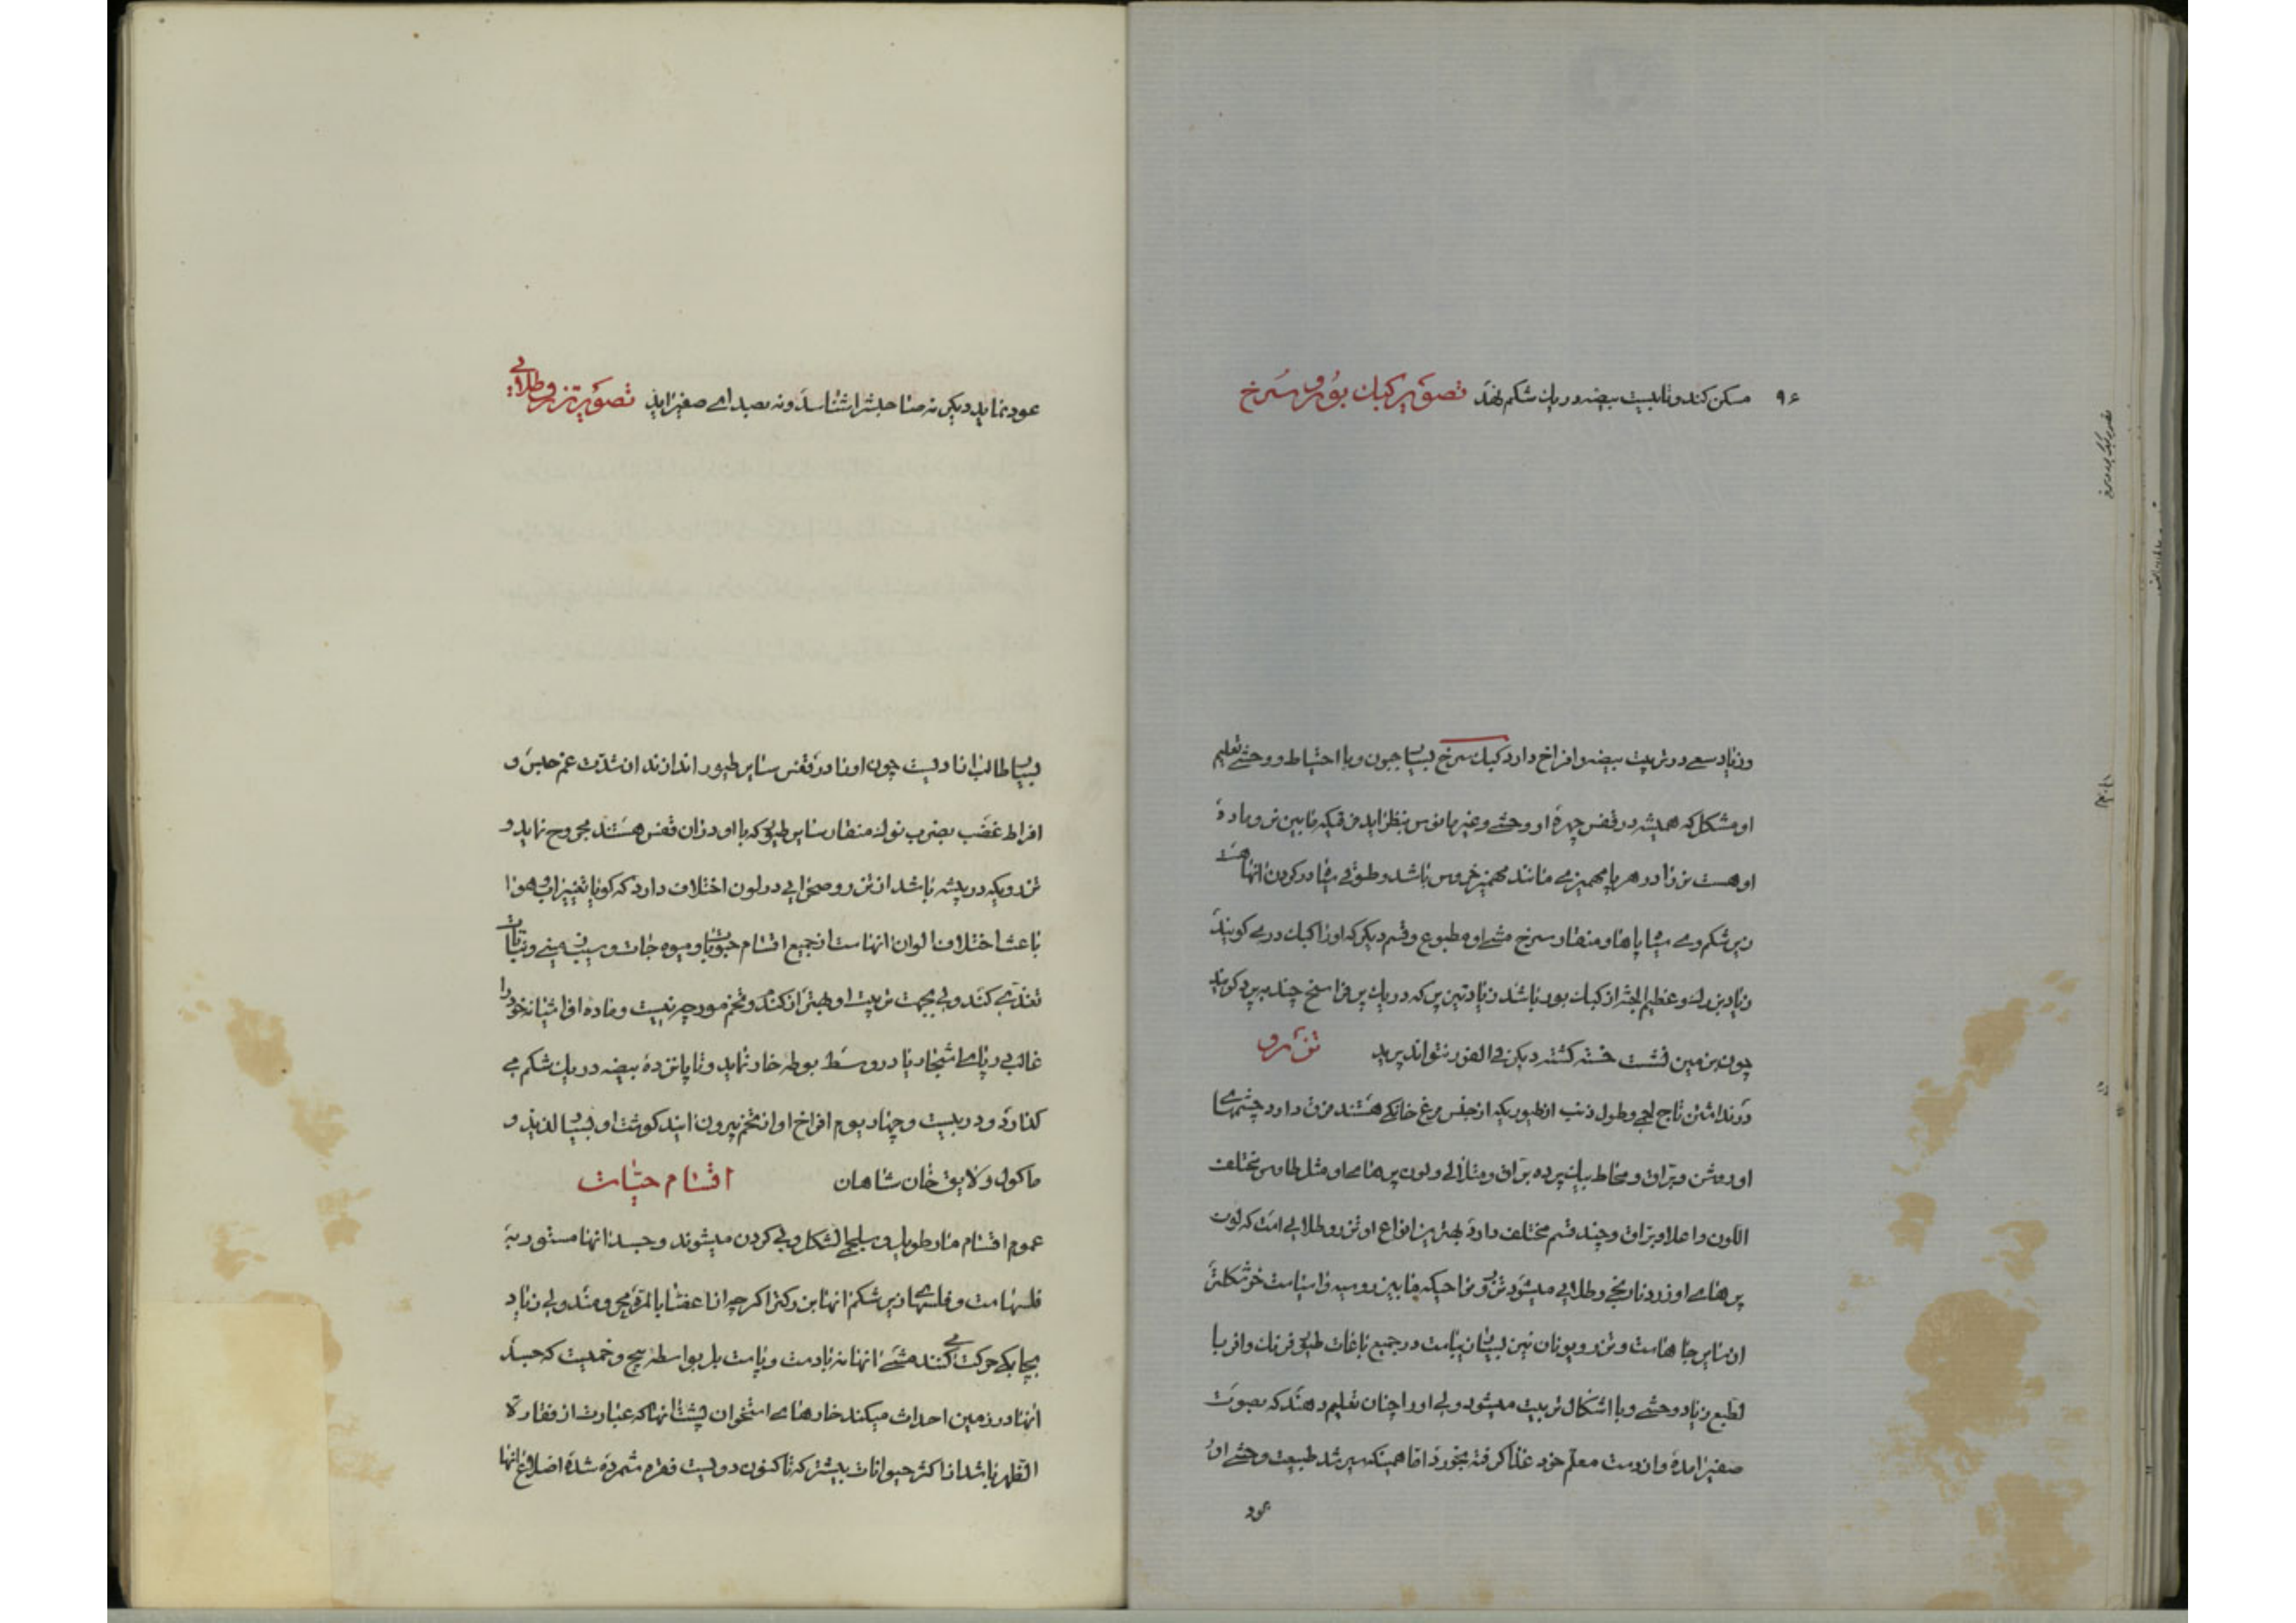 ۹۶
مسکن کند و تا بیست بیضه در یك شکم نهد تصویر کبك بور و سرخ
و زیاد سعی در تربیت بیضه و افراخ دارد کبك سرخ بسیار جبون و با احتیاط و وحشی تعلیم
او مشکل که همیشه در قفس چهره او وحشی و غیر مانوس بنظر اید فرقیکه مابین نر و ماده
او هست نر را در هر پا مهمیزی مانند مهمیز خروس باشد و طوقی سیاه در کردن انها هست
زیر شکم وی سیاه پاها و منقار سرخ مشی او مطبوع و قسم دیکر که او را کبك دری کویند
زیاد بزرك و عظیم الجثه از کبك بور باشد زیادترین پر که در یك پر فراسخ چند بپرد کویند
چون بزمین نشست خسته کشته دیکر فی الفور نتواند پرید تذرو
در نداشتن تاج لحمی و طول ذنب از طیوریکه از جنس مرغ خانکی هستند فرق دارد چشمهای
او روشن و براق و محاط بیك پرده براق و متلألی و لون پرهای او مثل طاوس مختلف
اللون و اعلا و براق و چند قسم مختلف دارد بهترین انواع او تذرو طلایی است که لون
پرهای او زرد نارنجی و طلایی میشود تذرو نواحیکه مابین روسیه و اسیاست خوشکلتر
از سایر جاهاست و تذرو یونان نیز بسیار زیباست در جمیع باغات طیور فرنك وافر با
لطبع زیاد وحشی و با اشکال تربیت میشود ولی او را چنان تعلیم دهند که بصوت
صفیر امده و از دست معلم خود غذا کرفته بخورد اما همینکه سیر شد طبیعت وحشی او
عود
عود نماید دیکر نه صاحبش را شناسد و نه بصدای صفیر اید تصویر تذرو طلایی
بسیار طالب ازادیست چون او را در قفس سایر طیور اندازند از شدت غم حبس و
افراط غضب بضرب نوك منقار سایر طیور که با او در ان قفس هستند مجروح نماید و
تذرویکه در بیشه باشد از تذرو صحرایی در لون اختلاف دارد که کویا تغییر اب و هوا
باعث اختلاف الوان انهاست از جمیع اقسام حبوبات و میوه جات و سیب زمینی و نباتات
تغذی کند ولی بجهت تربیت او بهتر از کندم و تخم مورچه نیست و ماده او اشیانه خود را
غالب در پای اشجار یا در وسط بوطه خار نماید و تا پانزده بیضه در یك شکم می
کذارد و در بیست و چهار یوم افراخ او از تخم بیرون ایند کوشت او بسیار لذیذ و
ماکول و لایق خان شاهان اقسام حیات
عموم اقسام مار طویل و سلجمی الشکل و بی کردن میشوند و جسد انها مستور به
فلسهاست و فلسهای زیر شکم انها بزرکتر اکرچه از اعضا بالمره محرومند ولی زیاد
بچابکی حرکت می کنند مشی انها نه با دست و پاست بل بواسطه پیچ و خمیست که جسد
انها در زمین احداث میکند خارهای استخوان پشت انها که عبارت از فقار لا
لظهر باشد از اکثر حیوانات بیشتر که تا کنون دویست فقره شمرده شده اضلاع انها